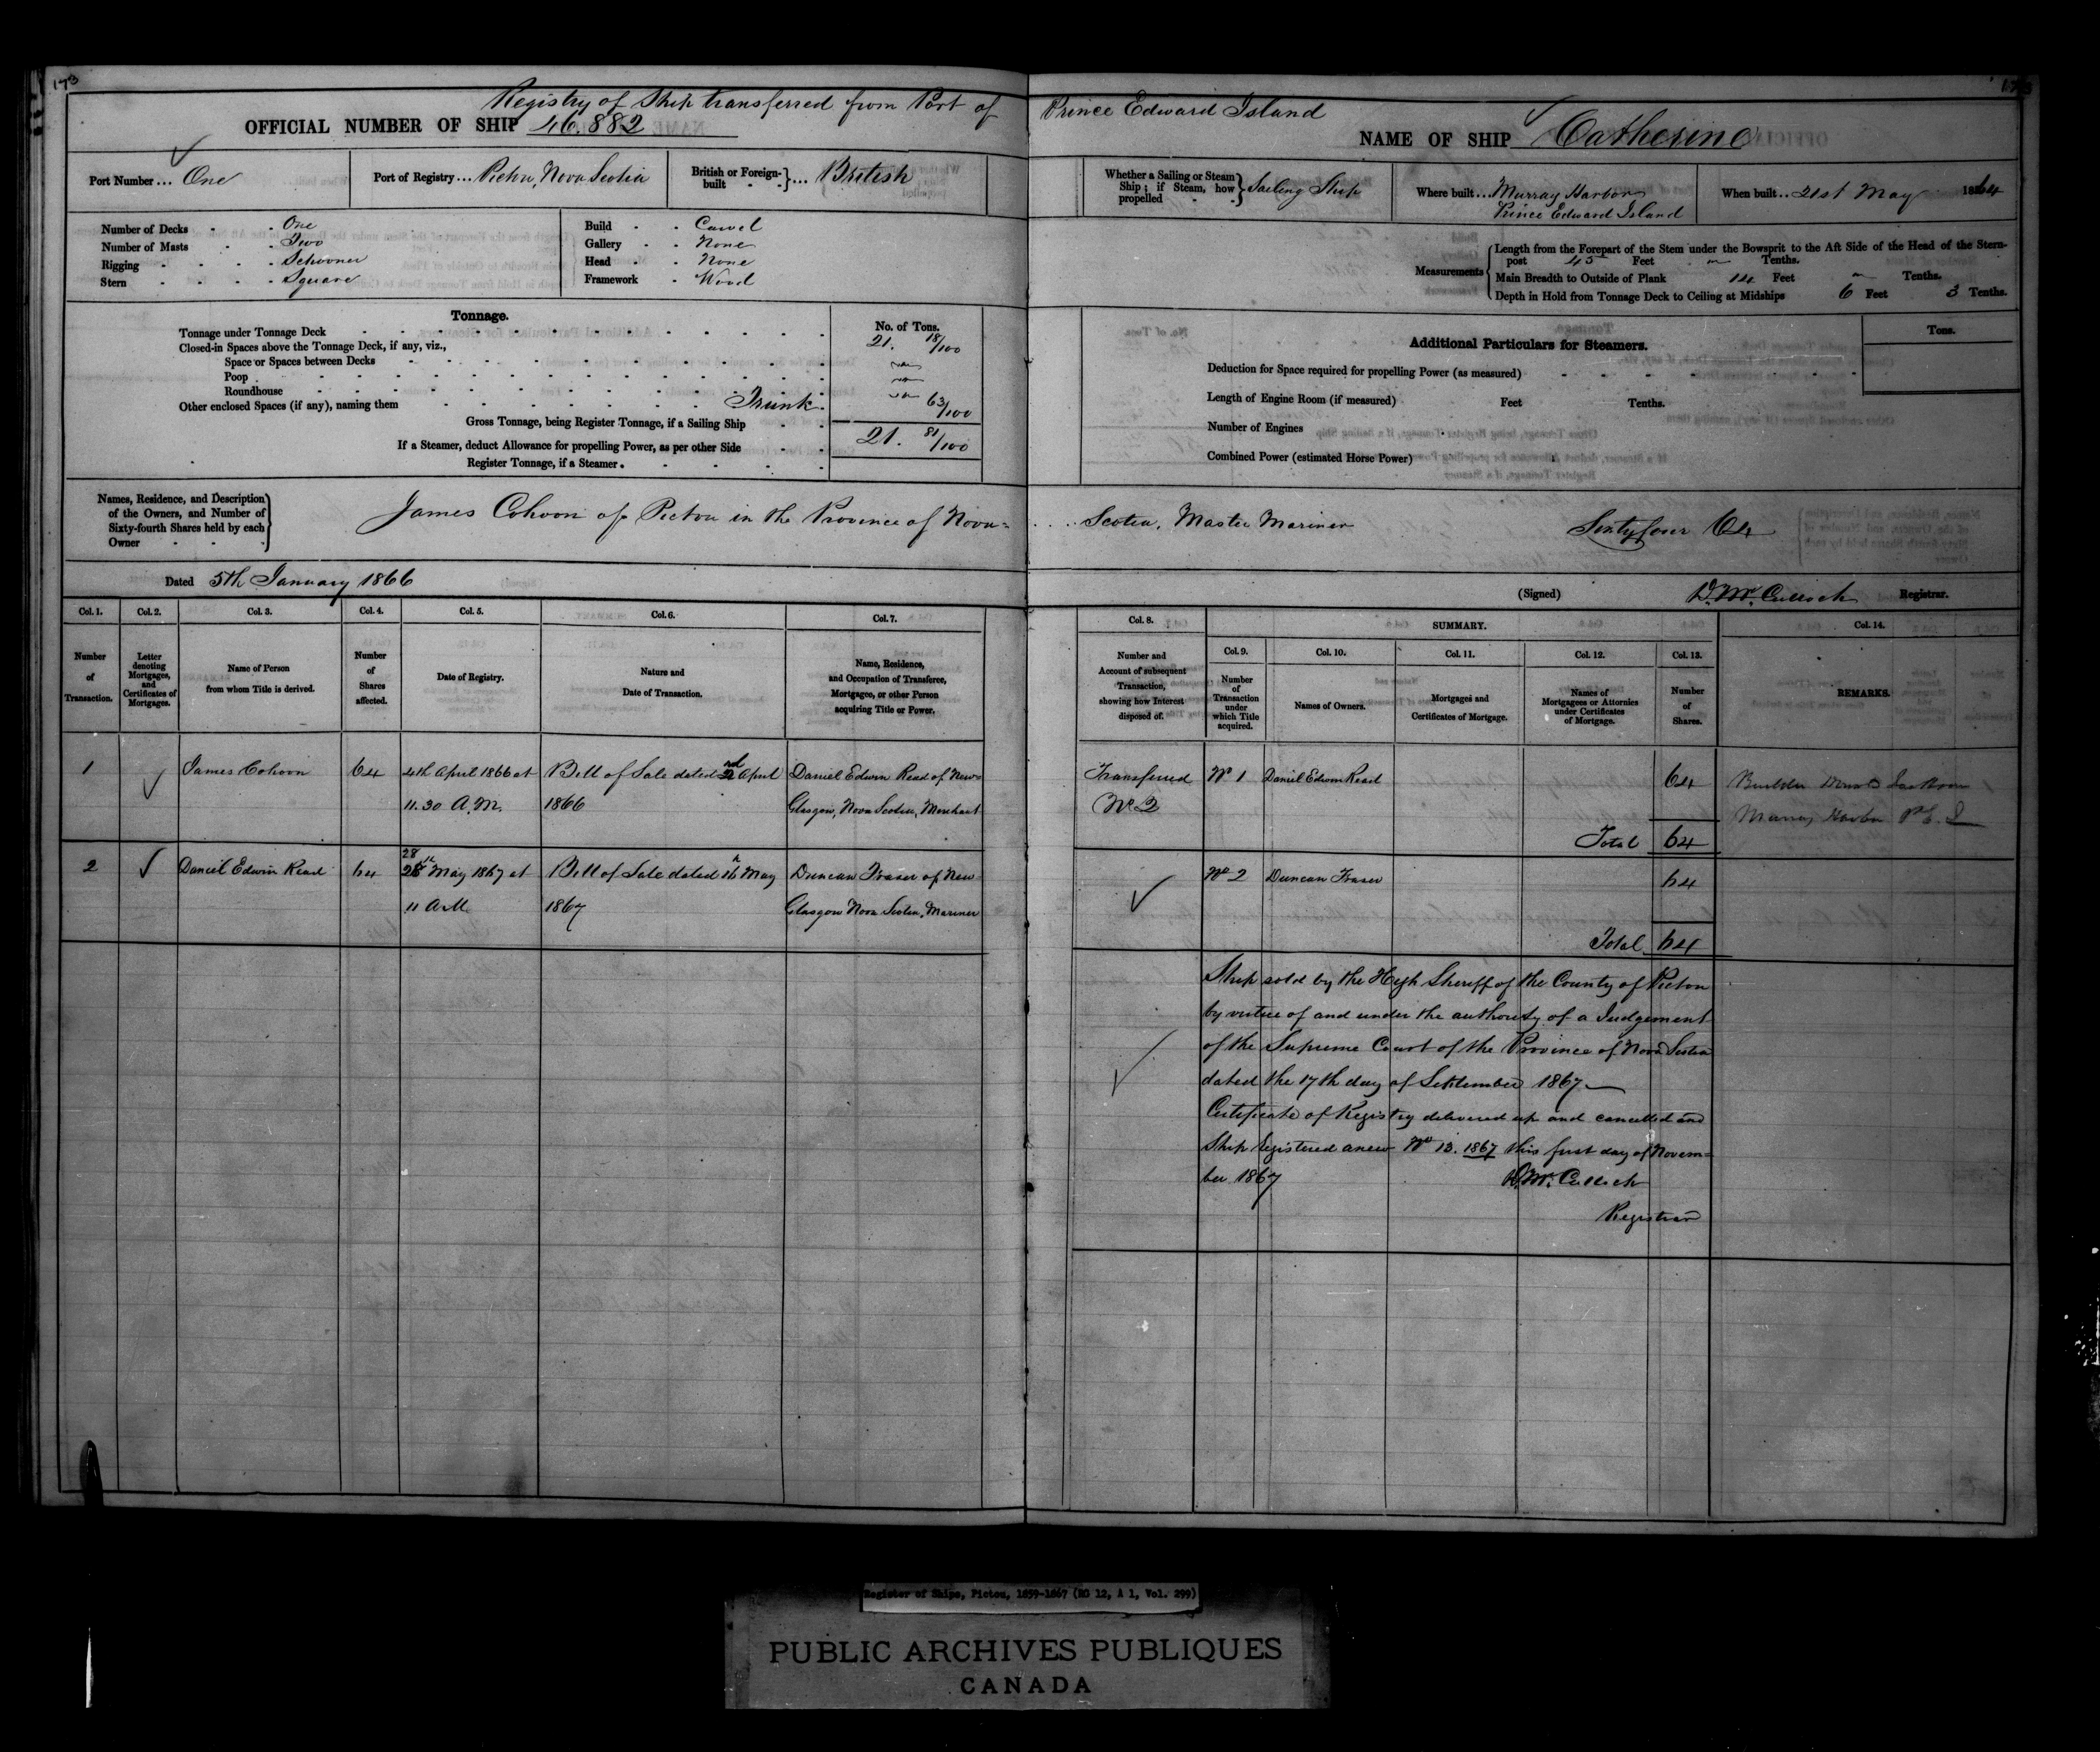 173
Registry of Ship transferred from Port of Prince Edward Island
OFFICIAL NUMBER OF SHIP 46.882
NAME OF SHIP Catherine
Port Number ... One
Port of Registry ... Pictou, Nova Scotia
British or Foreign-built } ... British
Whether a Sailing or Steam Ship; if Steam, how propelled } Sailing Ship
Where built ... Murray Harbor
Prince Edward Island
When built .. 21st May 1864
Number of Decks - One
Number of Masts - Two
Rigging - Schooner
Stern - Square
Build - Carvel
Gallery - None
Head - None
Framework - Wood
Measurements
Length from the Forepart of the Stem under the Bowsprit to the Aft Side of the Head of the Stern-
post 45 Feet Tenths.
Main Breadth to Outside of Plank 14 Feet Tenths.
Depth in Hold from Tonnage Deck to Ceiling at Midships 6 Feet 3 Tenths.
Tonnage.
No. of Tons.
Tonnage under Tonnage Deck 21. 18/100
Closed-in Spaces above the Tonnage Deck, if any, viz.,
Space or Spaces between Decks
Poop
Roundhouse
Other enclosed Spaces (if any), naming them Trunk. 63/100
Gross Tonnage, being Register Tonnage, if a Sailing Ship 21. 81/100
If a Steamer, deduct Allowance for propelling Power, as per other Side
Register Tonnage, if a Steamer.
Additional Particulars for Steamers.
Tons.
Deduction for Space required for propelling Power (as measured)
Length of Engine Room (if measured) Feet Tenths.
Number of Engines
Combined Power (estimated Horse Power)
Names, Residence, and Description
of the Owners, and Number of
Sixty-fourth Shares held by each
Owner
James Cohoon of Pictou in the Province of Nova=
Scotia, Master Mariner Sixty four 64
Dated 5th January 1866
(Signed) D. McCulloch Registrar.
Col. 1. Col. 2. Col. 3. Col. 4. Col. 5. Col. 6. Col. 7.
Number of Transaction.
Letter denoting Mortgages, and Certificates of Mortgages.
Name of Person from whom Title is derived.
Number of Shares affected.
Date of Registry.
Nature and Date of Transaction.
Name, Residence, and Occupation of Transferee, Mortgagee, or other Person acquiring Title or Power.
Col. 8.
Number and Account of subsequent Transaction, showing how Interest disposed of.
SUMMARY.
Col. 9. Col. 10. Col. 11. Col. 12. Col. 13. Col. 14.
Number of Transaction under which Title acquired.
Names of Owners.
Mortgages and Certificates of Mortgage.
Names of Mortgagees or Attornies under Certificates of Mortgage.
Number of Shares.
REMARKS.
1 James Cohoon 64 4th April 1866 at Bill of Sale dated 2nd April Daniel Edwin Read of New=
11.30 A.M. 1866 Glasgow, Nova Scotia, Merchant
Transferred No 1 Daniel Edwin Read 64
No 2
Total 64
Builder
Murray Harbor P.E.I
2 Daniel Edwin Read 64 28 May 1867 at Bill of Sale dated 16h May Duncan Fraser of New
11 A.M. 1867 Glasgow Nova Scotia, Mariner
No 2 Duncan Fraser 64
Total 64
Ship sold by the High Sheriff of the County of Pictou
by virtue of and under the authority of a Judgement
of the Supreme Court of the Province of Nova Scotia
dated the 17th day of September 1867
Certificate of Registry delivered up and cancelled and
Ship Registered anew No 13. 1867 this first day of Novem=
ber 1867 D. McCulloch
Registrar
Register of Ships, Pictou, 1859-1867 (RG 12, A 1, Vol. 299)
PUBLIC ARCHIVES PUBLIQUES
CANADA